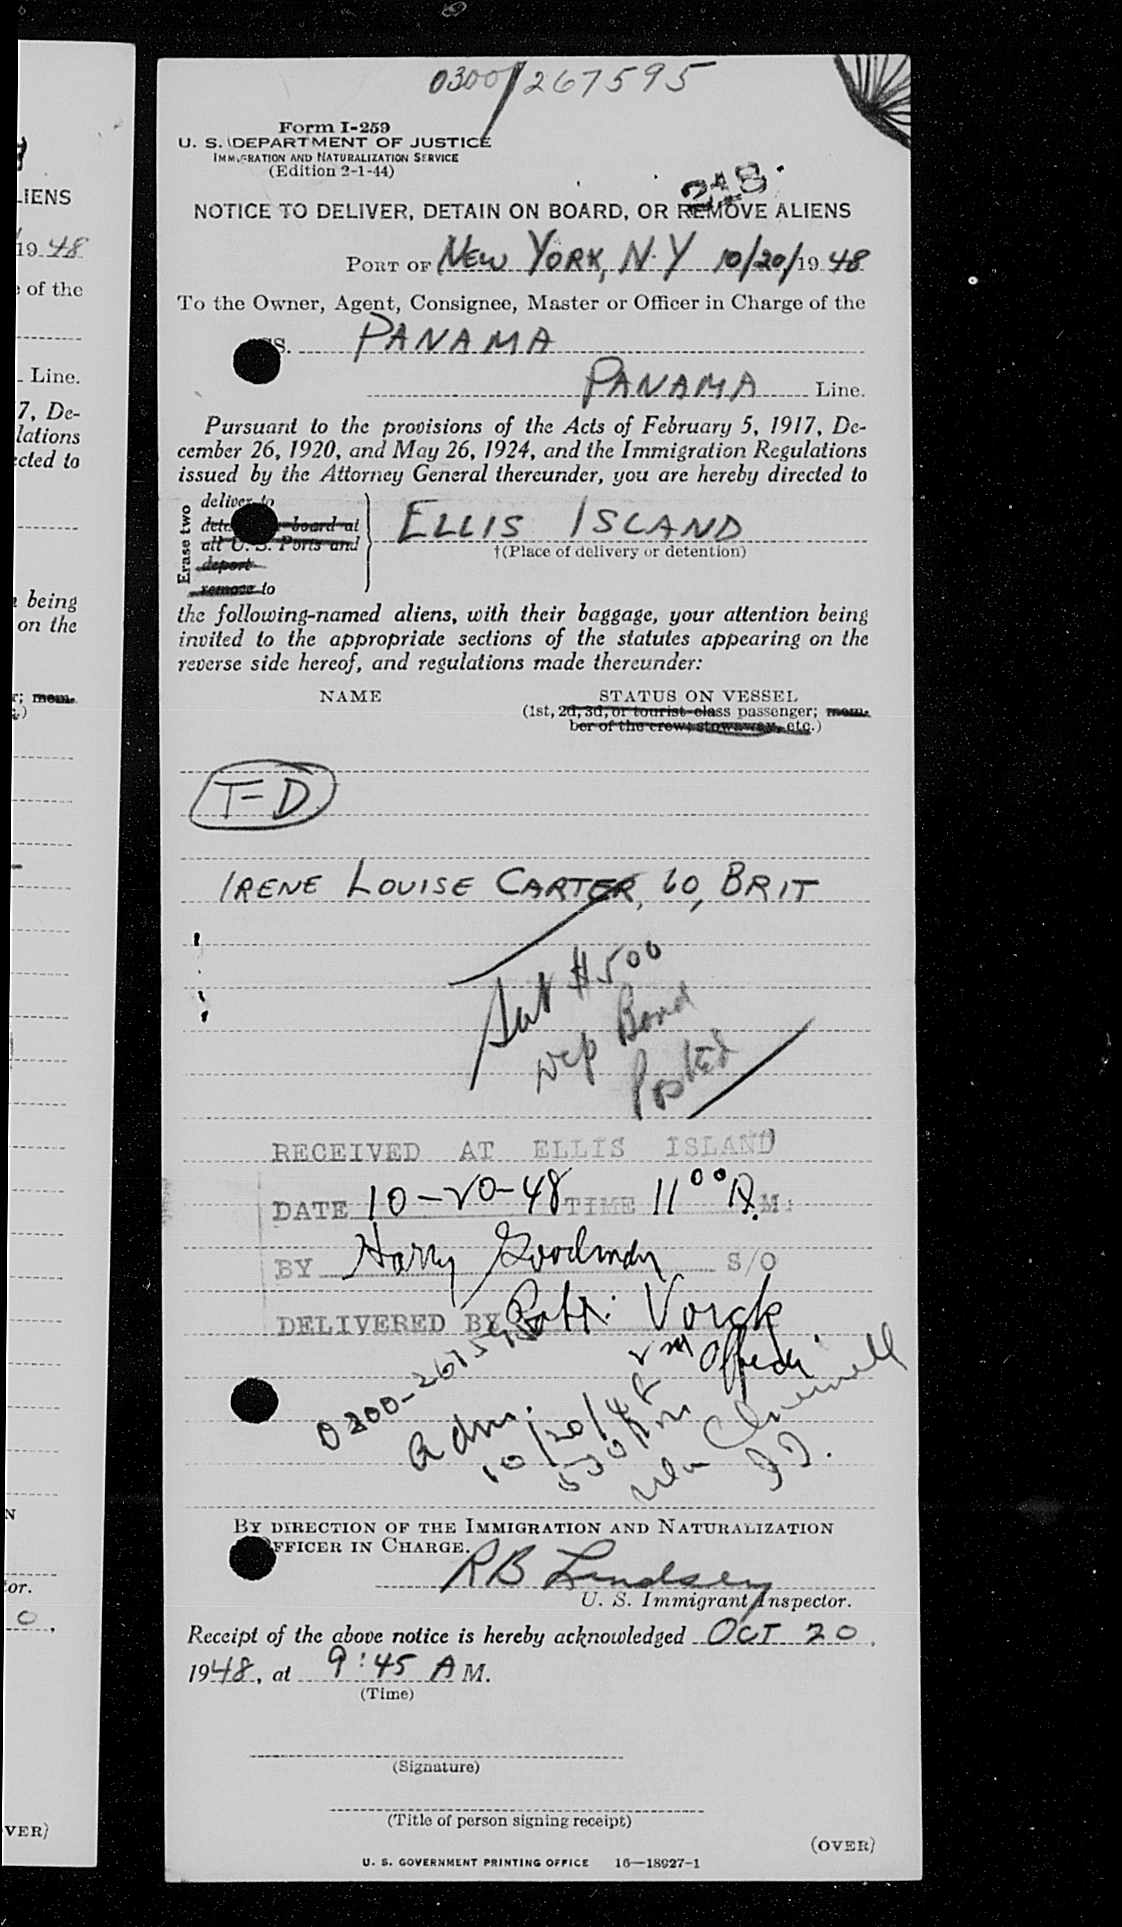 0300/267595
Form I-259
U. S. DEPARTMENT OF JUSTICE
IMMIGRATION AND NATURALIZATION SERVICE
(Edition 2-1-44)
218
NOTICE TO DELIVER, DETAIN ON BOARD, OR REMOVE ALIENS
PORT OF NEW YORK, N.Y 10/20/1948
To the Owner, Agent, Consignee, Master or Officer in Charge of the
SS. PANAMA
PANAMA Line.
Pursuant to the provisions of the Acts of February 5, 1917, De-
cember 26, 1920, and May 26, 1924, and the Immigration Regulations
issued by the Attorney General thereunder, you are hereby directed to
Erase two
deliver to
board at
all U. S. Ports and
deport
remove to
ELLIS ISLAND
†(Place of delivery or detention)
the following-named aliens, with their baggage, your attention being
invited to the appropriate sections of the statutes appearing on the
reverse side hereof, and regulations made thereunder:
NAME STATUS ON VESSEL
(1st, 2d, 3d, or tourist-class passenger; mem-
ber of the crew; stowaway, etc.)
T-D
IRENE LOUISE CARTER, 60, BRIT
$500
Dep Bond
Posted
RECEIVED AT ELLIS ISLAND
DATE 10-20-48 TIME 11 00 A.M.
BY Harry Goodman S/O
DELIVERED BY Vorck
0300-267595
Adm.
10/20/48
BY DIRECTION OF THE IMMIGRATION AND NATURALIZATION
OFFICER IN CHARGE.
RB Lindsey
U. S. Immigrant Inspector.
Receipt of the above notice is hereby acknowledged OCT 20,
1948, at 9:45 A M.
(Time)
(Signature)
(Title of person signing receipt)
(OVER)
U. S. GOVERNMENT PRINTING OFFICE 16—18927-1
LIENS
19 48
of the
Line.
7, De-
lations
ected to
being
on the
r; mem-
.)
N
tor.
0,
VER)